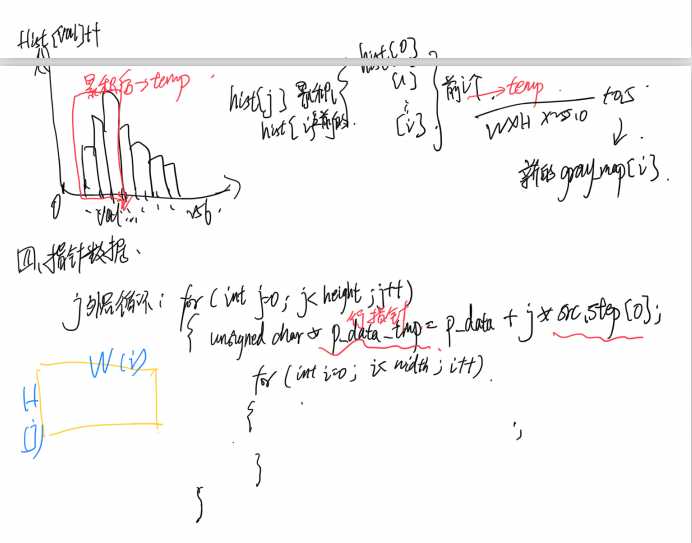 Hist[val]++
累积后→temp
hist[j] 累积
hist[i]之前的
hist[0]
[1]
[i]
前i个
→temp
W×H ×255.0 +0.5
新的gray_map[i].
0 val... 256.
四、指针数据、
j外层循环: for (int j=0; j<height; j++)
行指针
{ unsigned char* p_data_tmp = p_data + j * src.step[0];
W(i)
for (int i=0; i<width; i++)
H
{
(j)
;
}
}